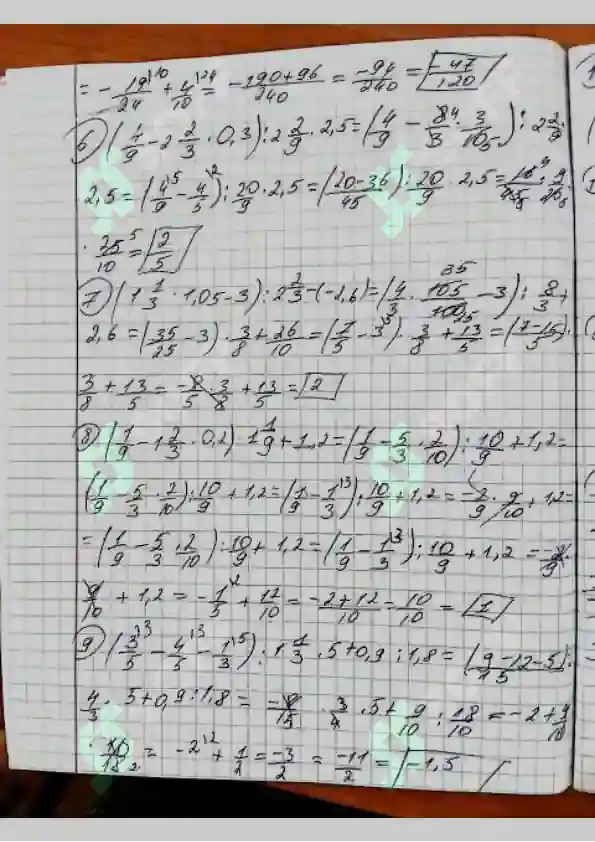 = - 19/24 + 4/10 = (-190+96)/240 = -94/240 = -47/120
6) (4/9 - 2 2/3 · 0,3) : 2 2/9 · 2,5 = (4/9 - 8/3 · 3/10) : 2 2/9 ·
2,5 = (4/9 - 4/5) : 20/9 · 2,5 = (20-36)/45 : 20/9 · 2,5 = 16/45 · 9/20
· 25/10 = 2/5
7) (1 1/3 · 1,05 - 3) : 2 2/3 - (-2,6) = (4/3 · 105/100 - 3) : 8/3 +
2,6 = (35/25 - 3) · 3/8 + 26/10 = (7/5 - 3) · 3/8 + 13/5 = (7-15)/5 ·
3/8 + 13/5 = -8/5 · 3/8 + 13/5 = 2
8) (1/9 - 1 2/3 · 0,2) 1 1/9 + 1,2 = (1/9 - 5/3 · 2/10) : 10/9 + 1,2 =
(1/9 - 5/3 · 2/10) : 10/9 + 1,2 = (1/9 - 1/3) : 10/9 + 1,2 = -2/9 · 9/10 + 1,2 =
= (1/9 - 5/3 · 2/10) : 10/9 + 1,2 = (1/9 - 1/3) : 10/9 + 1,2 = -2/9 ·
9/10 + 1,2 = -1/5 + 12/10 = (-2+12)/10 = 10/10 = 1
9) (3/5 - 4/5 - 1/3) : 1 1/3 · 5 + 0,9 : 1,8 = (9-12-5)/15 :
4/3 · 5 + 0,9 : 1,8 = -8/15 · 3/4 · 5 + 9/10 : 18/10 = -2 + 9/10
· 10/18 = -2 + 1/2 = -3/2 = -11/2 = -1,5